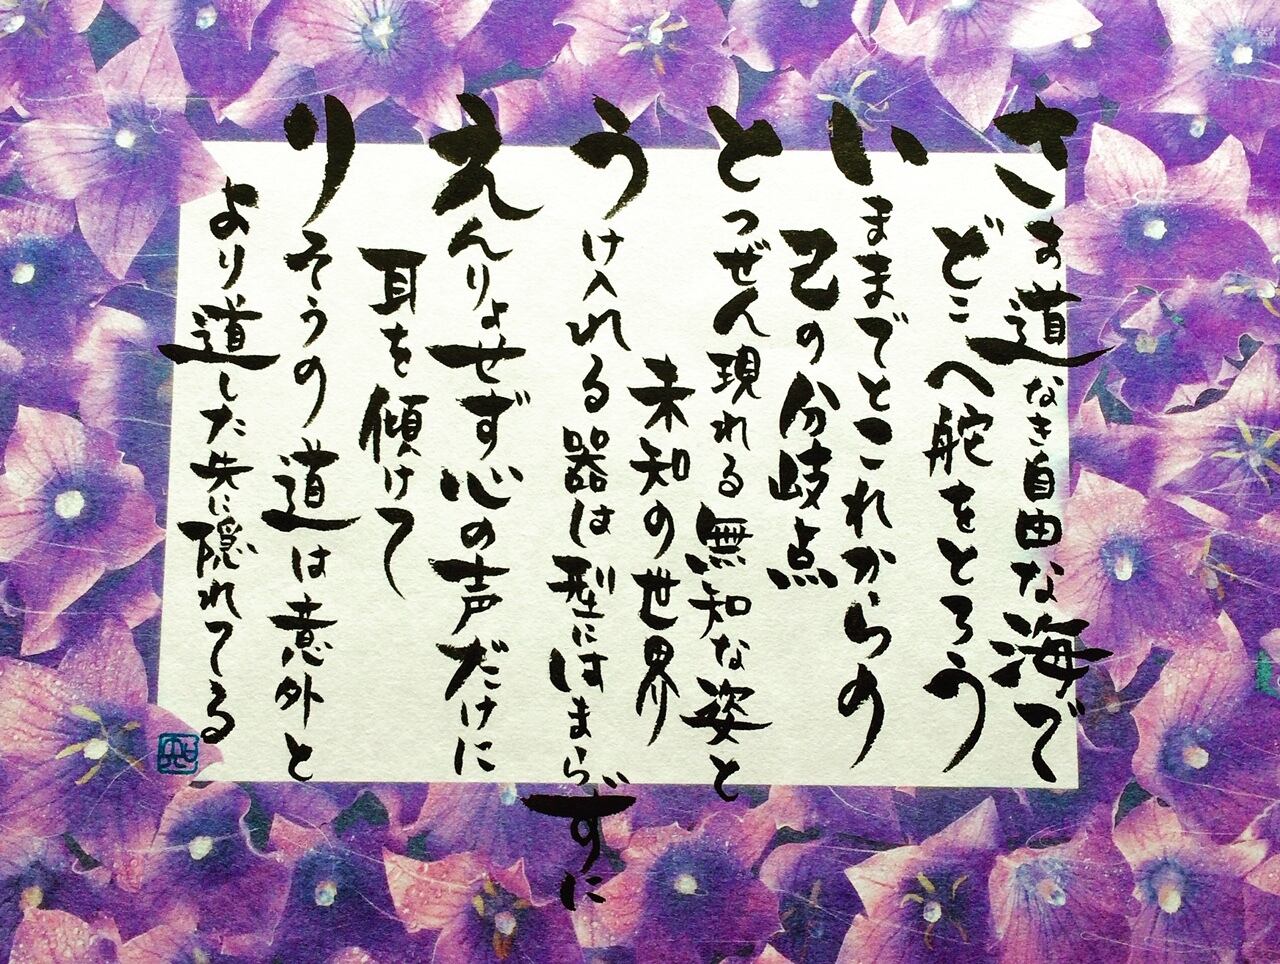 さあ道なき自由な海で
どこへ舵をとろう
いままでとこれからの
己の分岐点
とつぜん現れる無知な姿と
未知の世界
うけ入れる器は型にはまらずに
えんりょせず心の声だけに
耳を傾けて
りそうの道は意外と
より道した先に隠れてる